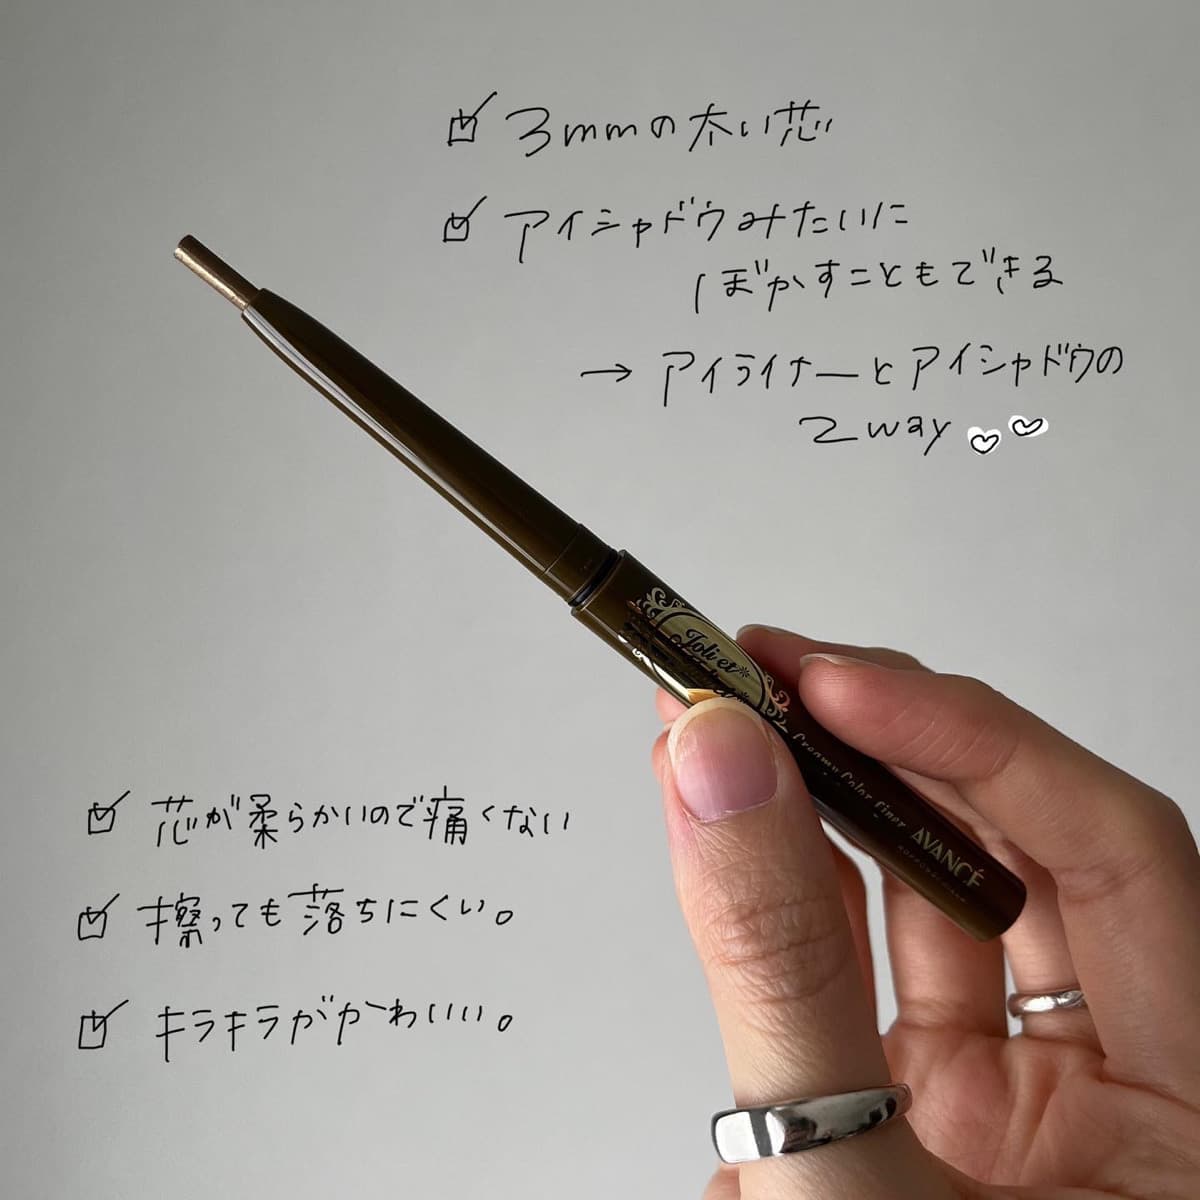 3mmの太い芯
アイシャドウみたいに
ぼかすこともできる
→ アイライナーとアイシャドウの
2way
Joliet
Creamy Color Liner AVANCÉ
芯が柔らかいので痛くない
擦っても落ちにくい。
キラキラがかわいい。